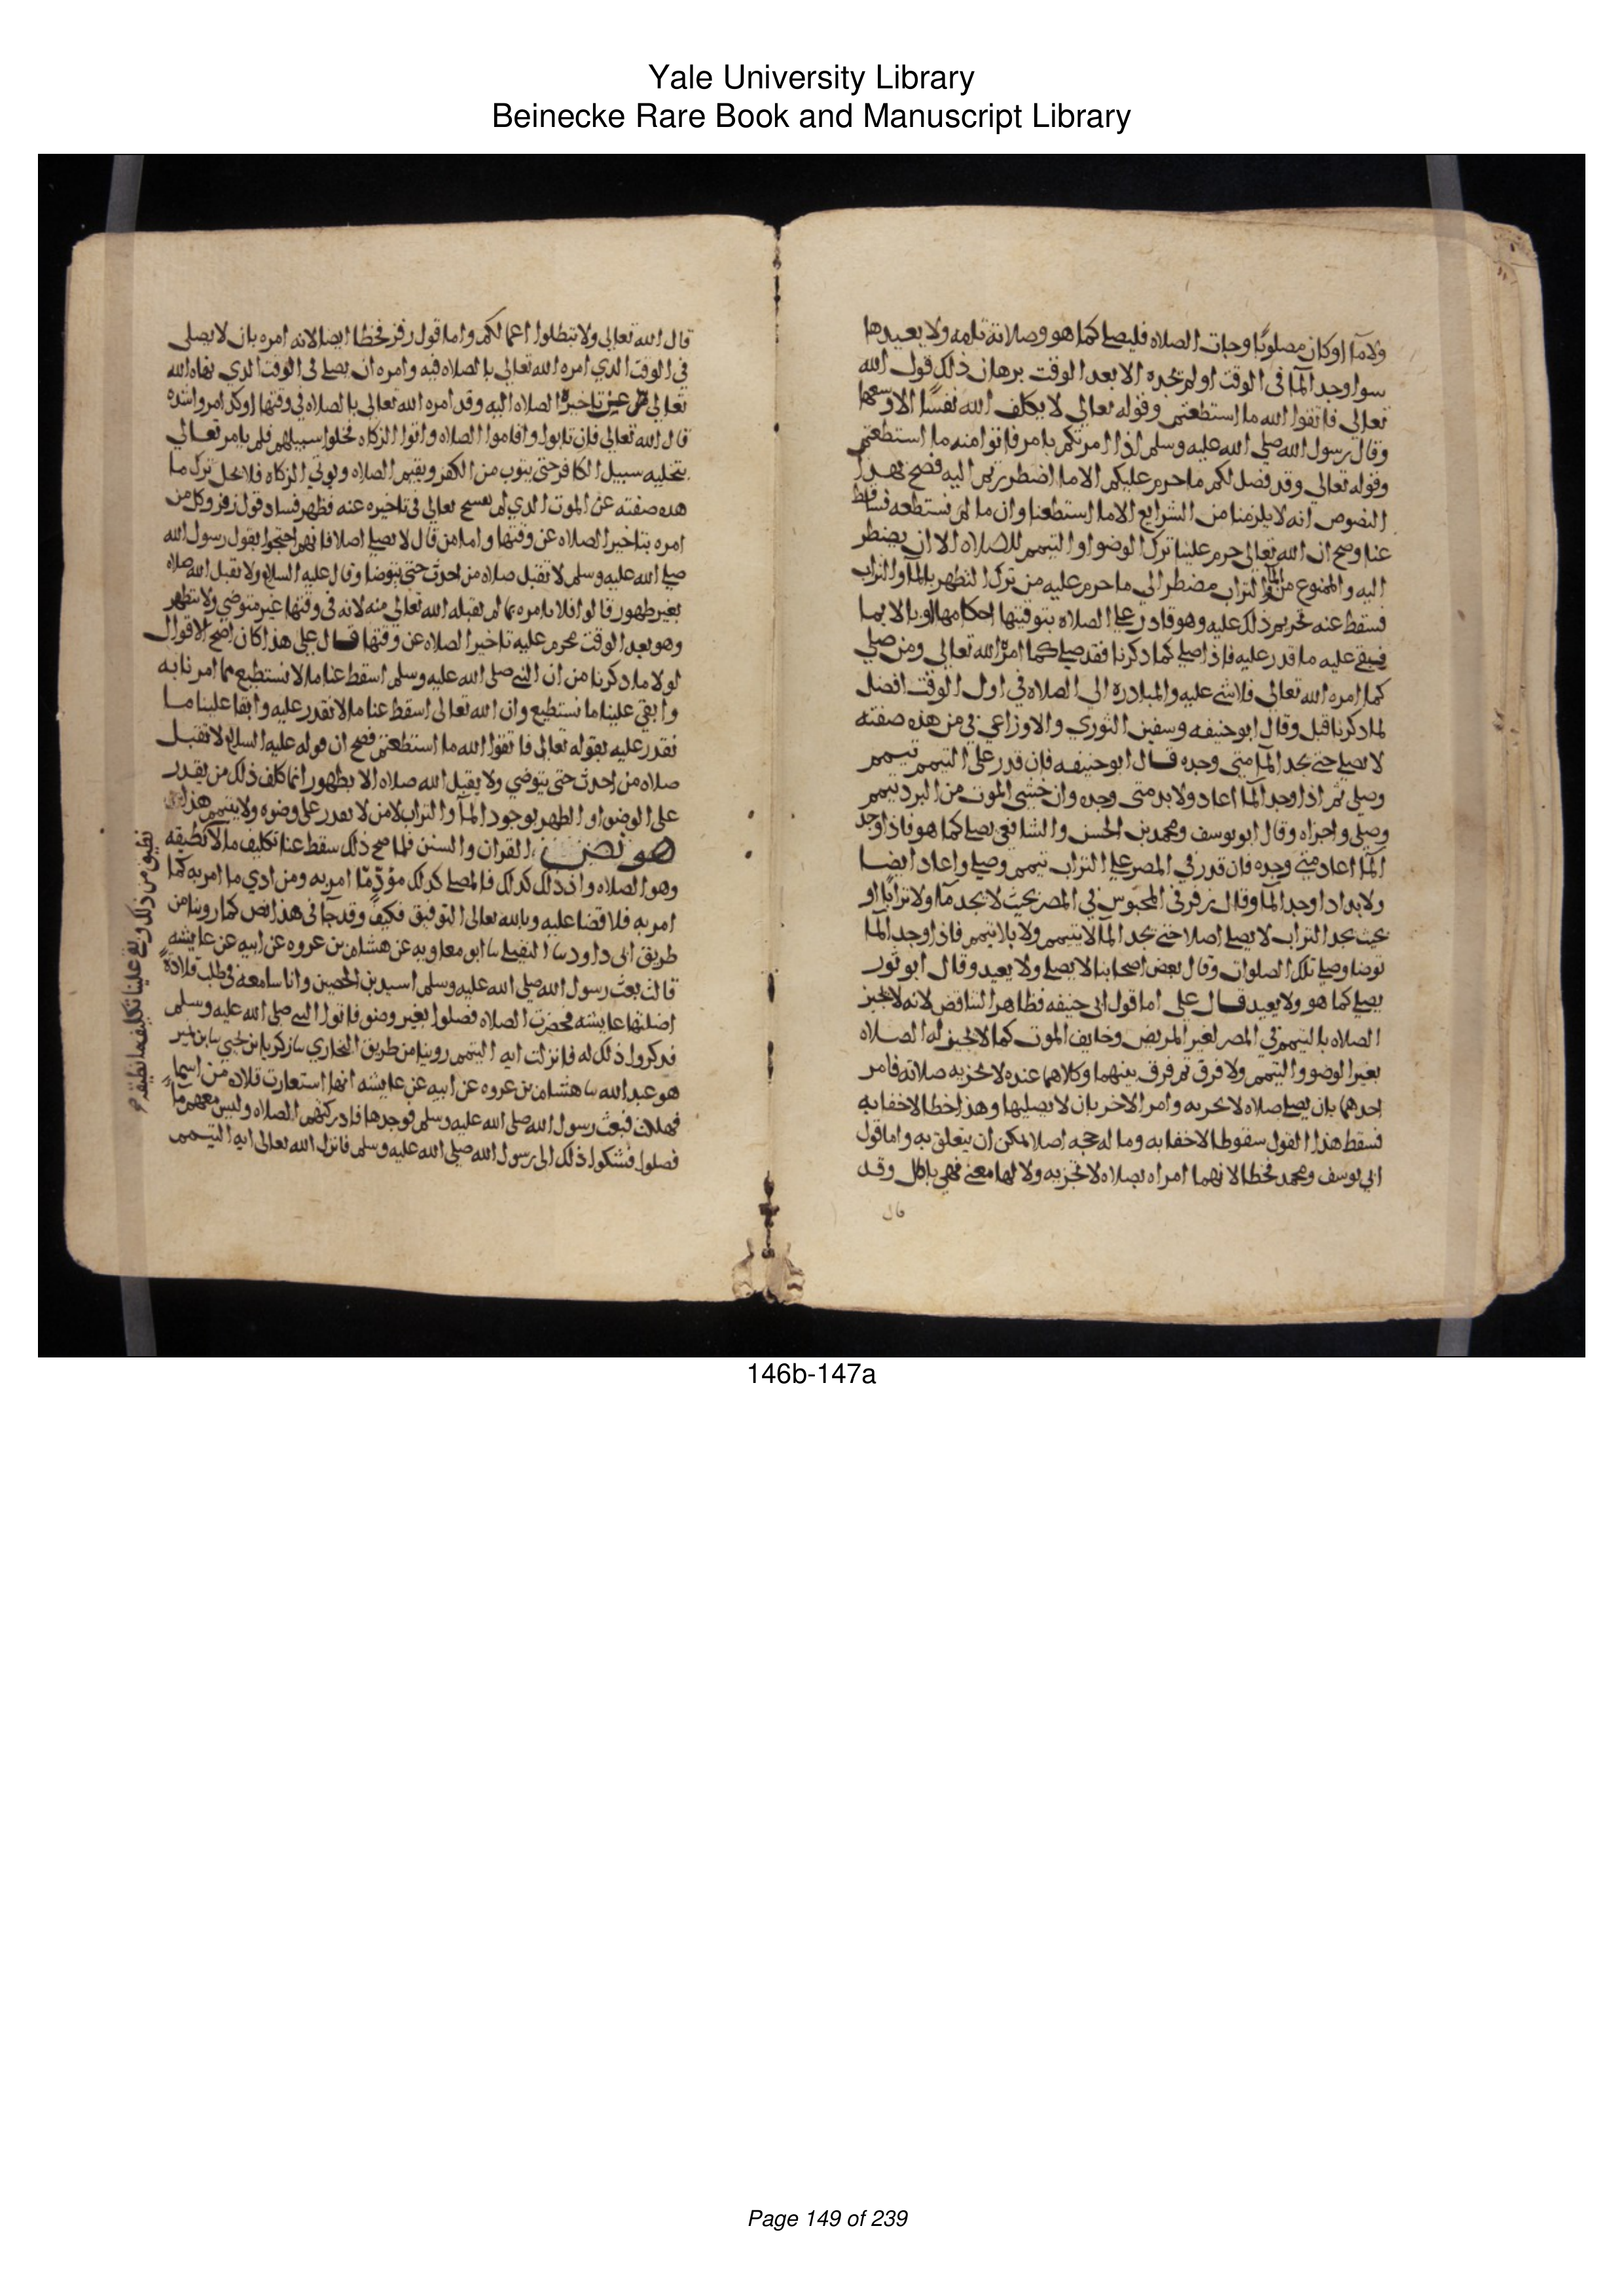 Yale University Library
Beinecke Rare Book and Manuscript Library
ولا ما او كان مصلوبا وجات الصلاه فليصل كما هو وصلاته تامه ولا يعيدها
سوا وجد الما فى الوقت او لم يجده الا بعد الوقت برهان ذلك قول الله
تعالى فاتقوا الله ما استطعتم وقوله تعالى لا يكلف الله نفسًا الا وسعها
وقال رسول الله صلى الله عليه وسلم اذا امرتكم بامر فاتوا منه ما استطعتم
وقوله تعالى وقد فصل لكم ما حرم عليكم الا ما اضطررتم اليه فصح بهذه
النصوص انه لا يلزمنا من الشرايع الا ما استطعنا وان ما لم نستطعه فساقط
عنا وصح ان الله تعالى حرم علينا ترك الوضوا او التيمم للصلاه الا ان يضطر
اليه والممنوع من الما والتراب مضطر الى ما حرم عليه من ترك التطهر بالما والتراب
فسقط عنه تحريم ذلك عليه وهو قادر على الصلاه بتوفيتها احكامها وبالايما
فبقى عليه ما قدر عليه فاذا صلى كما ذكرنا فقد صلى كما امره الله تعالى ومن صلى
كما امره الله تعالى فلا شى عليه والمبادره الى الصلاه فى اول الوقت افضل
لما ذكرنا قبل وقال ابو حنيفه وسفين الثوري والاوزاعي في من هذه صفته
لا يصلى حتى يجد الما متى وجده قال ابو حنيفه فان قدر على التيمم تيمم
وصلى ثم اذا وجد الما اعاد ولا بد متى وجده وان خشى الموت من البرد تيمم
وصلى واجزاه وقال ابو يوسف ومحمد بن الحسن والشافعي يصلى كما هو فاذا وجد
الما اعاد متى وجده فان قدر في المصر على التراب تيمم وصلى واعاد ايضا
ولا بد اذا وجد الما وقال زفر فى المحبوس في المصر بحيث لا يجد ما ولا ترابًا او
بحيث يجد التراب لا يصلى اصلا حتى يجد الما لا بتيمم ولا بلا تيمم فاذا وجد الما
توضا وصلى تلك الصلوات وقال بعض اصحابنا لا يصلى ولا يعيد وقال ابو ثور
يصلى كما هو ولا يعيد قال على اما قول ابى حنيفه فظاهر التناقض لانه لا يجيز
الصلاه بالتيمم في المصر لغير المريض وخايف الموت كما لا يجيز له الصلاه
بغير الوضو والتيمم ولا فرق ثم فرق بينهما وكلاهما عنده لا تجزيه صلاته فامر
احدهما بان يصلى صلاه لا تجزيه وامر الاخر بان لا يصليها وهذا خطا لا خفا به
فسقط هذا القول سقوطا لا خفا به وما له حجه اصلا يمكن ان يتعلق به واما قول
ابي يوسف ومحمد فخطا لانهما امراه بصلاه لا تجزيه ولا لها معنى فهي باطل وقد
قال
قال الله تعالى ولا تبطلوا اعمالكم واما قول زفر فخطا ايضا لانه امره بان لا يصلى
فى الوقت الذي امره الله تعالى بالصلاه فيه وامره ان يصلى فى الوقت الذي نهاه الله
تعالى عن تاخير الصلاه اليه وقد امره الله تعالى بالصلاه في وقتها اوكد امر واشده
قال الله تعالى فان تابوا واقاموا الصلاه واتوا الزكاه فخلوا سبيلهم فلم يامر تعالى
بتخليه سبيل الكافر حتى يتوب من الكفر ويقيم الصلاه ويوتي الزكاه فلا يحل ترك ما
هذه صفته عن الموت الذي لم يفسح تعالى فى تاخيره عنه فظهر فساد قول زفر وكل من
امره بتاخير الصلاه عن وقتها واما من قال لا يصلى اصلا فانهم احتجوا بقول رسول الله
صلى الله عليه وسلم لا تقبل صلاه من احدث حتى يتوضا وقال عليه السلام ولا تقبل الله صلاه
بغير طهور قالوا فلا نامره بما لم يقبله الله تعالى منه لانه فى وقتها غير متوضي ولا متطهر
وهو بعد الوقت محرم عليه تاخير الصلاه عن وقتها قال على هذا كان اصح الاقوال
لولا ما ذكرنا من ان النبى صلى الله عليه وسلم اسقط عنا ما لا نستطيع مما امرنا به
وابقى علينا ما نستطيع وان الله تعالى اسقط عنا ما لا نقدر عليه وابقا علينا ما
نقدر عليه بقوله تعالى فاتقوا الله ما استطعتم فصح ان قوله عليه السلام لا تقبل
صلاه من احدث حتى يتوضي ولا يقبل الله صلاه الا بطهور انما كلف ذلك من يقدر
على الوضو او الطهر بوجود الما والتراب لا من لا يقدر على وضوه ولا يتيمم هذا
هو نص القران والسنن فلما صح ذلك سقط عنا تكليف ما لا نطيقه
وهو الصلاه واذ ذلك كذلك فالمصلى كذلك مؤدّ ما امر به ومن ادي ما امر به كما
امر به فلا قضا عليه وبالله تعالى التوفيق فكيف وقد جا فى هذا نص كما روينا من
طريق ابى داود نا النفيلى نا ابو معاويه عن هشام بن عروه عن ابيه عن عايشه
قالت بعث رسول الله صلى الله عليه وسلم اسيد بن الحصين واناسا معه فى طلب قلادة
اضلتها عايشه فحضرت الصلاه فصلوا بغير وضو فاتوا النبى صلى الله عليه وسلم
فذكروا ذلك له فانزلت ايه التيمم روينا من طريق البخاري نا زكريا بن يحيي نا ابن نمير
هو عبد الله نا هشام بن عروه عن ابيه عن عايشه انها استعارت قلاده من اسما
فهلكت فبعث رسول الله صلى الله عليه وسلم فوجدها فادركتهم الصلاه وليس معهم ما
فصلوا فشكوا ذلك الى رسول الله صلى الله عليه وسلم فانزل الله تعالى ايه التيمم
نطيق من ذلك وبقى علينا تكليف ما نطيقه
146b-147a
Page 149 of 239